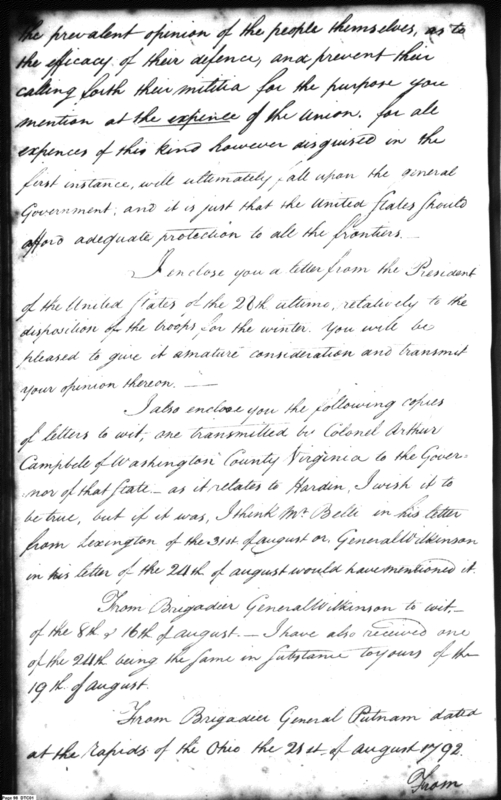 the prevalent opinion of the people themselves, as to
the efficacy of their defence, and prevent their
calling forth their militia for the purpose you
mention at the expence of the Union. for all
expences of this kind however disguised in the
first instance, will ultimately fall upon the general
Government; and it is just that the United States should
afford adequate protection to all the frontiers.—
I enclose you a letter from the President
of the United States of the 28th ultimo, relatively to the
disposition of the troops for the winter. You will be
pleased to give it a mature consideration and transmit
your opinion thereon. —
I also enclose you the following copies
of letters to wit, one transmitted by Colonel Arthur
Campbell of Washington County Virginia to the Gover-
nor of that State — as it relates to Hardin, I wish it to
be true, but if it was, I think Mr. Belli in his letter
from Lexington of the 31st of august or General Wilkinson
in his letter of the 24th of august would have mentioned it
From Brigadier General Wilkinson to wit,—
of the 8th & 16th of august.— I have also received one
of the 24th being the same in substance to yours of the
19th of august.
From Brigadier General Putnam dated
at the Rapids of the Ohio the 21st of august 1792.
From
Page 96 DTC01